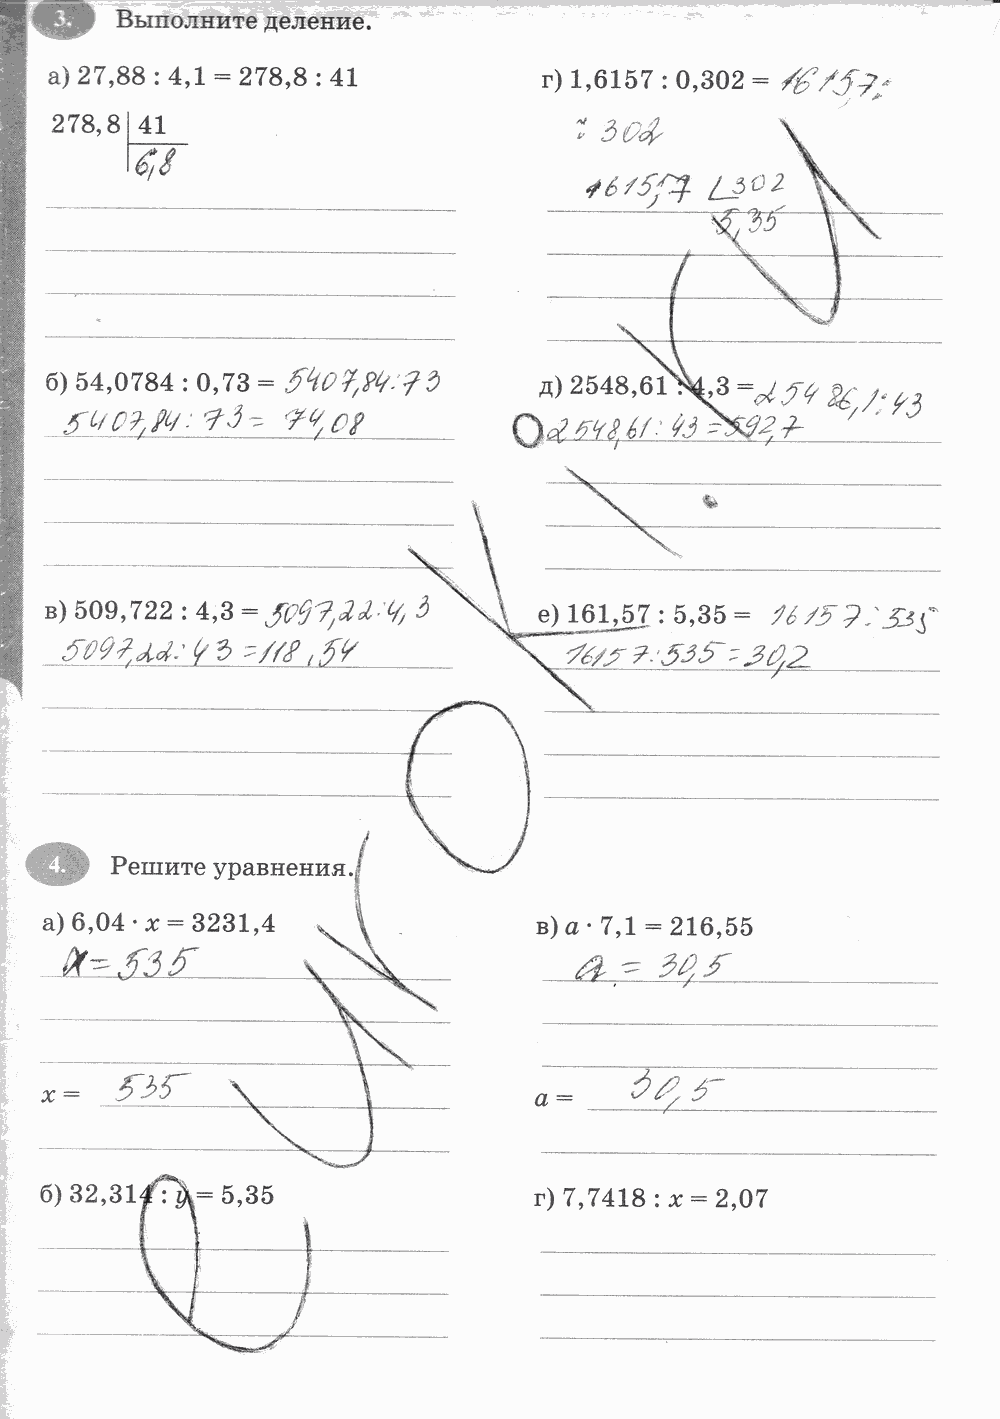 3. Выполните деление.
а) 27,88 : 4,1 = 278,8 : 41
278,8 41
6,8
г) 1,6157 : 0,302 = 1615,7 :
: 302
1615,7 302
5,35
б) 54,0784 : 0,73 = 5407,84 : 73
5407,84 : 73 = 74,08
д) 2548,61 : 4,3 = 25486,1 : 43
2548,61 : 43 = 592,7
в) 509,722 : 4,3 = 5097,22 : 4,3
5097,22 : 43 = 118,54
е) 161,57 : 5,35 = 16157 : 535
16157 : 535 = 30,2
4. Решите уравнения.
а) 6,04 · x = 3231,4
x = 535
x = 535
в) a · 7,1 = 216,55
a = 30,5
a = 30,5
б) 32,314 : y = 5,35
г) 7,7418 : x = 2,07